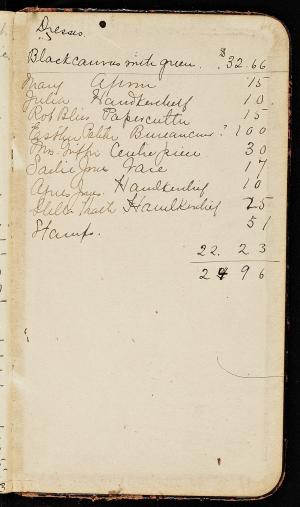 Dresses.
Black canvas with green. $32.66
Mary Apron 15
Julia Handkerchief 10
Rob Bliss Papercutter 15
Bureaucover? 100
Mrs. Centre piece 30
Sadie Jones Vase 17
Agnes Jones. Handkerchief 10
Stella Handkerchief 25
Stamps. 51
22. 23
24 96